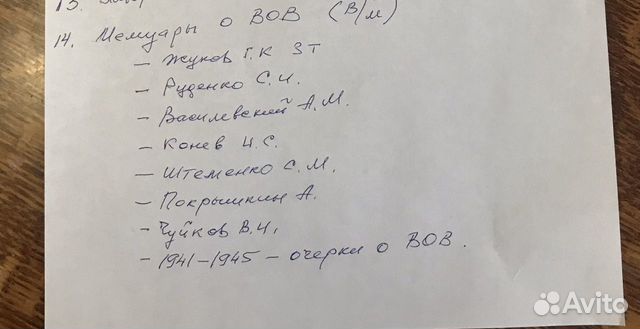 13.
14. Мемуары о ВОВ (В/м)
– Жуков Г.К 3т
– Руденко С.И.
– Василевский А.М.
– Конев И.С.
– Штеменко С.М.
– Покрышкин А.
– Чуйков В.И.
– 1941–1945 – очерки о ВОВ.
Avito